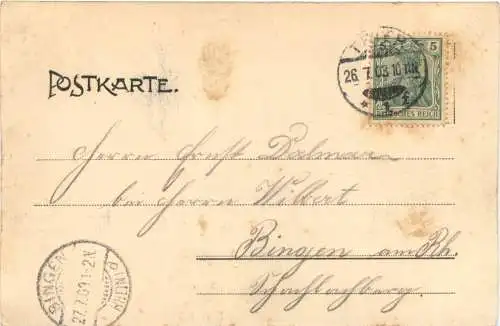 POSTKARTE.
5
26. 7. 03. 10-11 V.
DEUTSCHES REICH
Herrn Ernst
bei Herrn Wilbert
Bingen am Rh.
BINGEN
27.7.03.1-2.N.